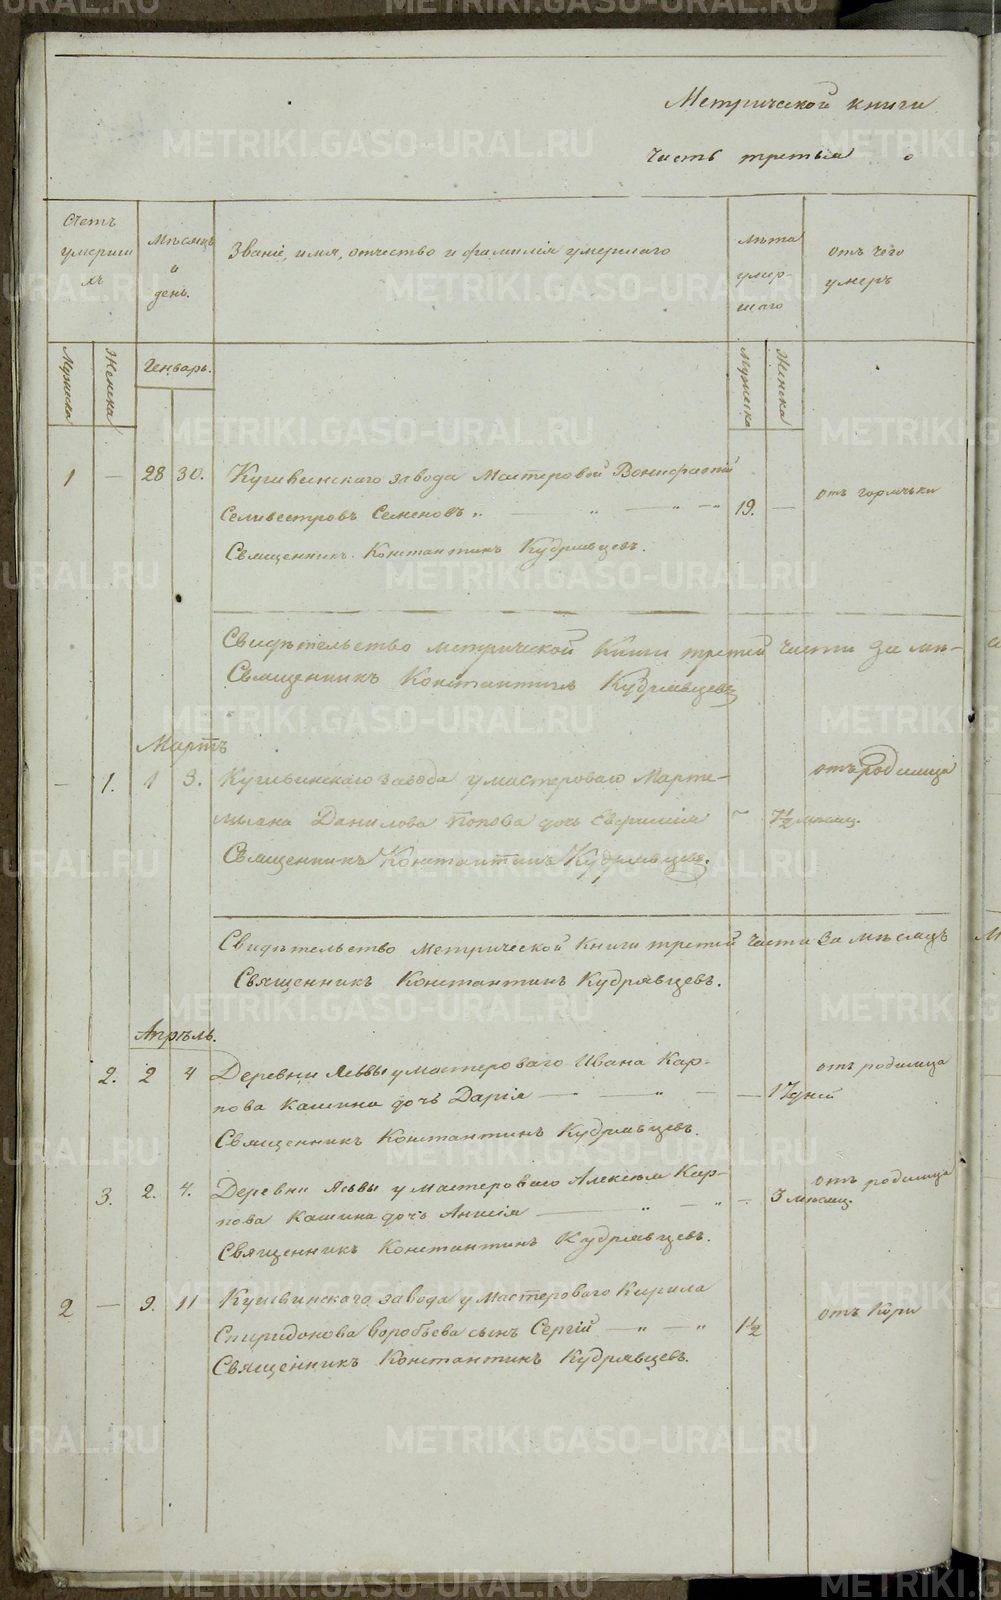 Метрической книги
часть третья о
Счетъ умерши хъ
Мѣсяцъ и день.
Званіе, имя, отчество и фамилія умершаго
лѣта умер- шаго
отъ чего умеръ
Мужска
Женска
Генварь.
Мужеска
Женска
1 — 28 30. Кушвинскаго завода Мастеровой Вонифатій
отъ горячьки
Селивестровъ Семеновъ „ — „ — „ — „ 19. —
Священникъ Константинъ Кудрявцевъ.
Свидѣтельство метрической Книги третей части За мѣ-
Священникъ Константинъ Кудрявцевъ
Мартъ
— 1. 1 3. Кушвинскаго завода у мастероваго Марте- отъ родимца
мьяна Данилова Попова дочь Евфимія ~ 7½ мѣсяц.
Священникъ Константинъ Кудрявцевъ.
Свидѣтельство Метрической Книги третей части За мѣсяцъ
Священникъ Константинъ Кудрявцевъ.
Апрѣль.
2. 2 4 Деревни Лѣввы у мастероваго Ивана Кар- отъ родимца
пова Кашина дочь Дарія — — „ — — 17 дней
Священникъ Константинъ Кудрявцевъ.
3. 2. 4. Деревни у мастероваго Алексѣя Кар- отъ родимца
пова Кашина дочь Анисія — „ — „ — 3 мѣсяц.
Священникъ Константинъ Кудрявцевъ.
2 — 9. 11 Кушвинскаго завода у Мастероваго Кирила отъ Кори
Спиридонова Воробьева сынъ Сергій — „ — „ 1½
Священникъ Константинъ Кудрявцевъ.
METRIKI.GASO-URAL.RU